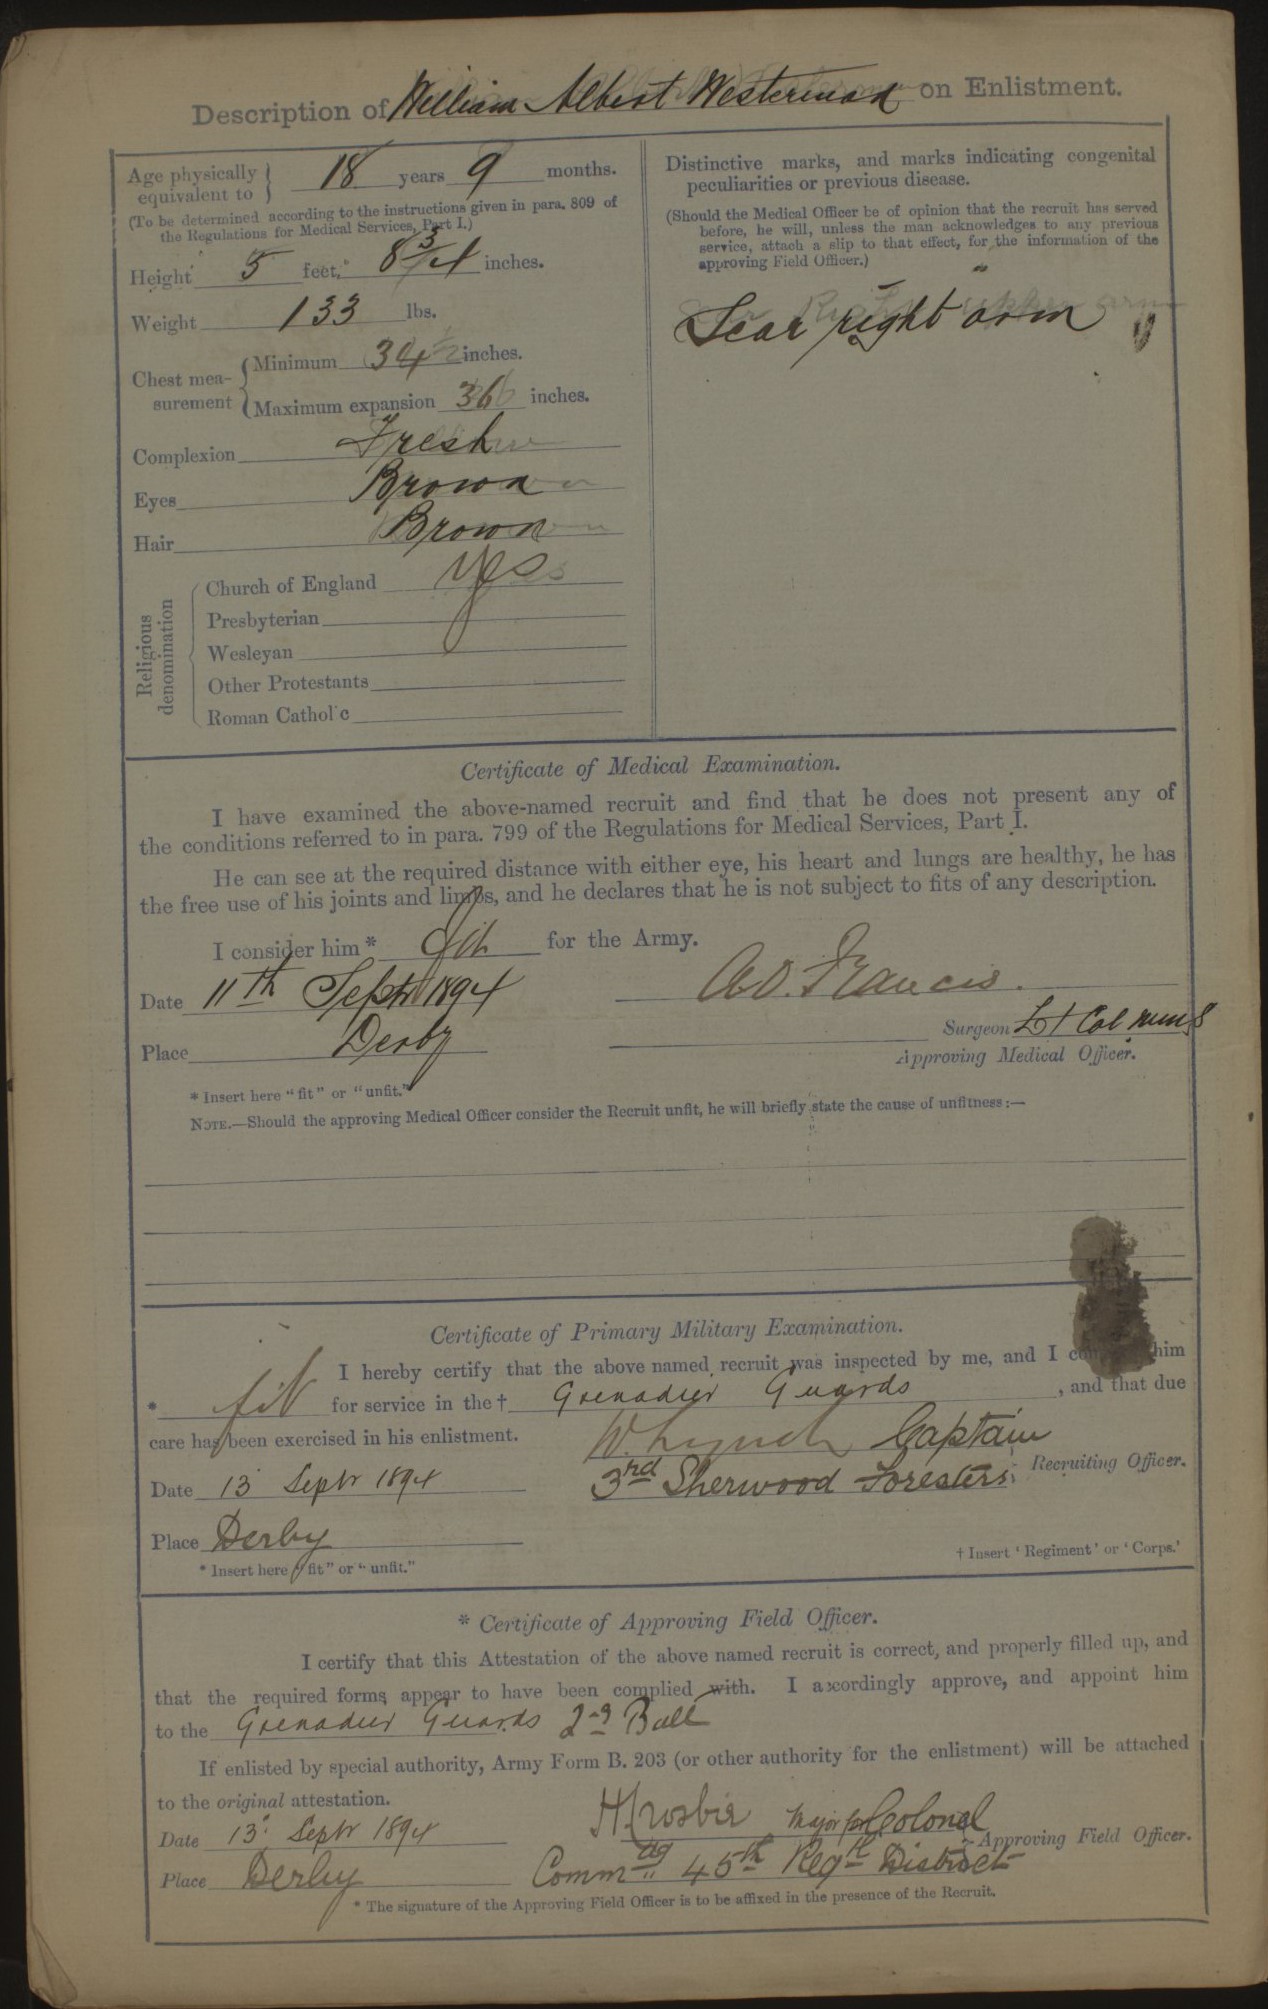 Description of William Albert Westerman on Enlistment.
Age physically equivalent to } 18 years 9 months.
(To be determined according to the instructions given in para. 809 of
the Regulations for Medical Services, Part I.)
Height 5 feet, 8 3/4 inches.
Weight 133 lbs.
Chest measurement { Minimum 34 inches.
Maximum expansion 36 inches.
Complexion Fresh
Eyes Brown
Hair Brown
Religious denomination
Church of England Yes
Presbyterian
Wesleyan
Other Protestants
Roman Catholic
Distinctive marks, and marks indicating congenital
peculiarities or previous disease.
(Should the Medical Officer be of opinion that the recruit has served
before, he will, unless the man acknowledges to any previous
service, attach a slip to that effect, for the information of the
approving Field Officer.)
Scar right arm
Certificate of Medical Examination.
I have examined the above-named recruit and find that he does not present any of
the conditions referred to in para. 799 of the Regulations for Medical Services, Part I.
He can see at the required distance with either eye, his heart and lungs are healthy, he has
the free use of his joints and limbs, and he declares that he is not subject to fits of any description.
I consider him * fit for the Army.
Date 11th Septr 1894 Francis.
Surgeon Lt Col
Place Derby
Approving Medical Officer.
* Insert here "fit" or "unfit."
NOTE.—Should the approving Medical Officer consider the Recruit unfit, he will briefly state the cause of unfitness:—
Certificate of Primary Military Examination.
I hereby certify that the above named recruit was inspected by me, and I him
* fit for service in the † Grenadier Guards, and that due
care has been exercised in his enlistment. W. Lynch Captain
Date 13 Septr 1894 3rd Sherwood Foresters. Recruiting Officer.
Place Derby
* Insert here "fit" or "unfit."
† Insert 'Regiment' or 'Corps.'
* Certificate of Approving Field Officer.
I certify that this Attestation of the above named recruit is correct, and properly filled up, and
that the required forms appear to have been complied with. I accordingly approve, and appoint him
to the Grenadier Guards 2nd Batt
If enlisted by special authority, Army Form B. 203 (or other authority for the enlistment) will be attached
to the original attestation.
H Crosbie Major for Colonel
Date 13. Septr 1894 Approving Field Officer.
Place Derby Commdg 45th Regtl District
* The signature of the Approving Field Officer is to be affixed in the presence of the Recruit.